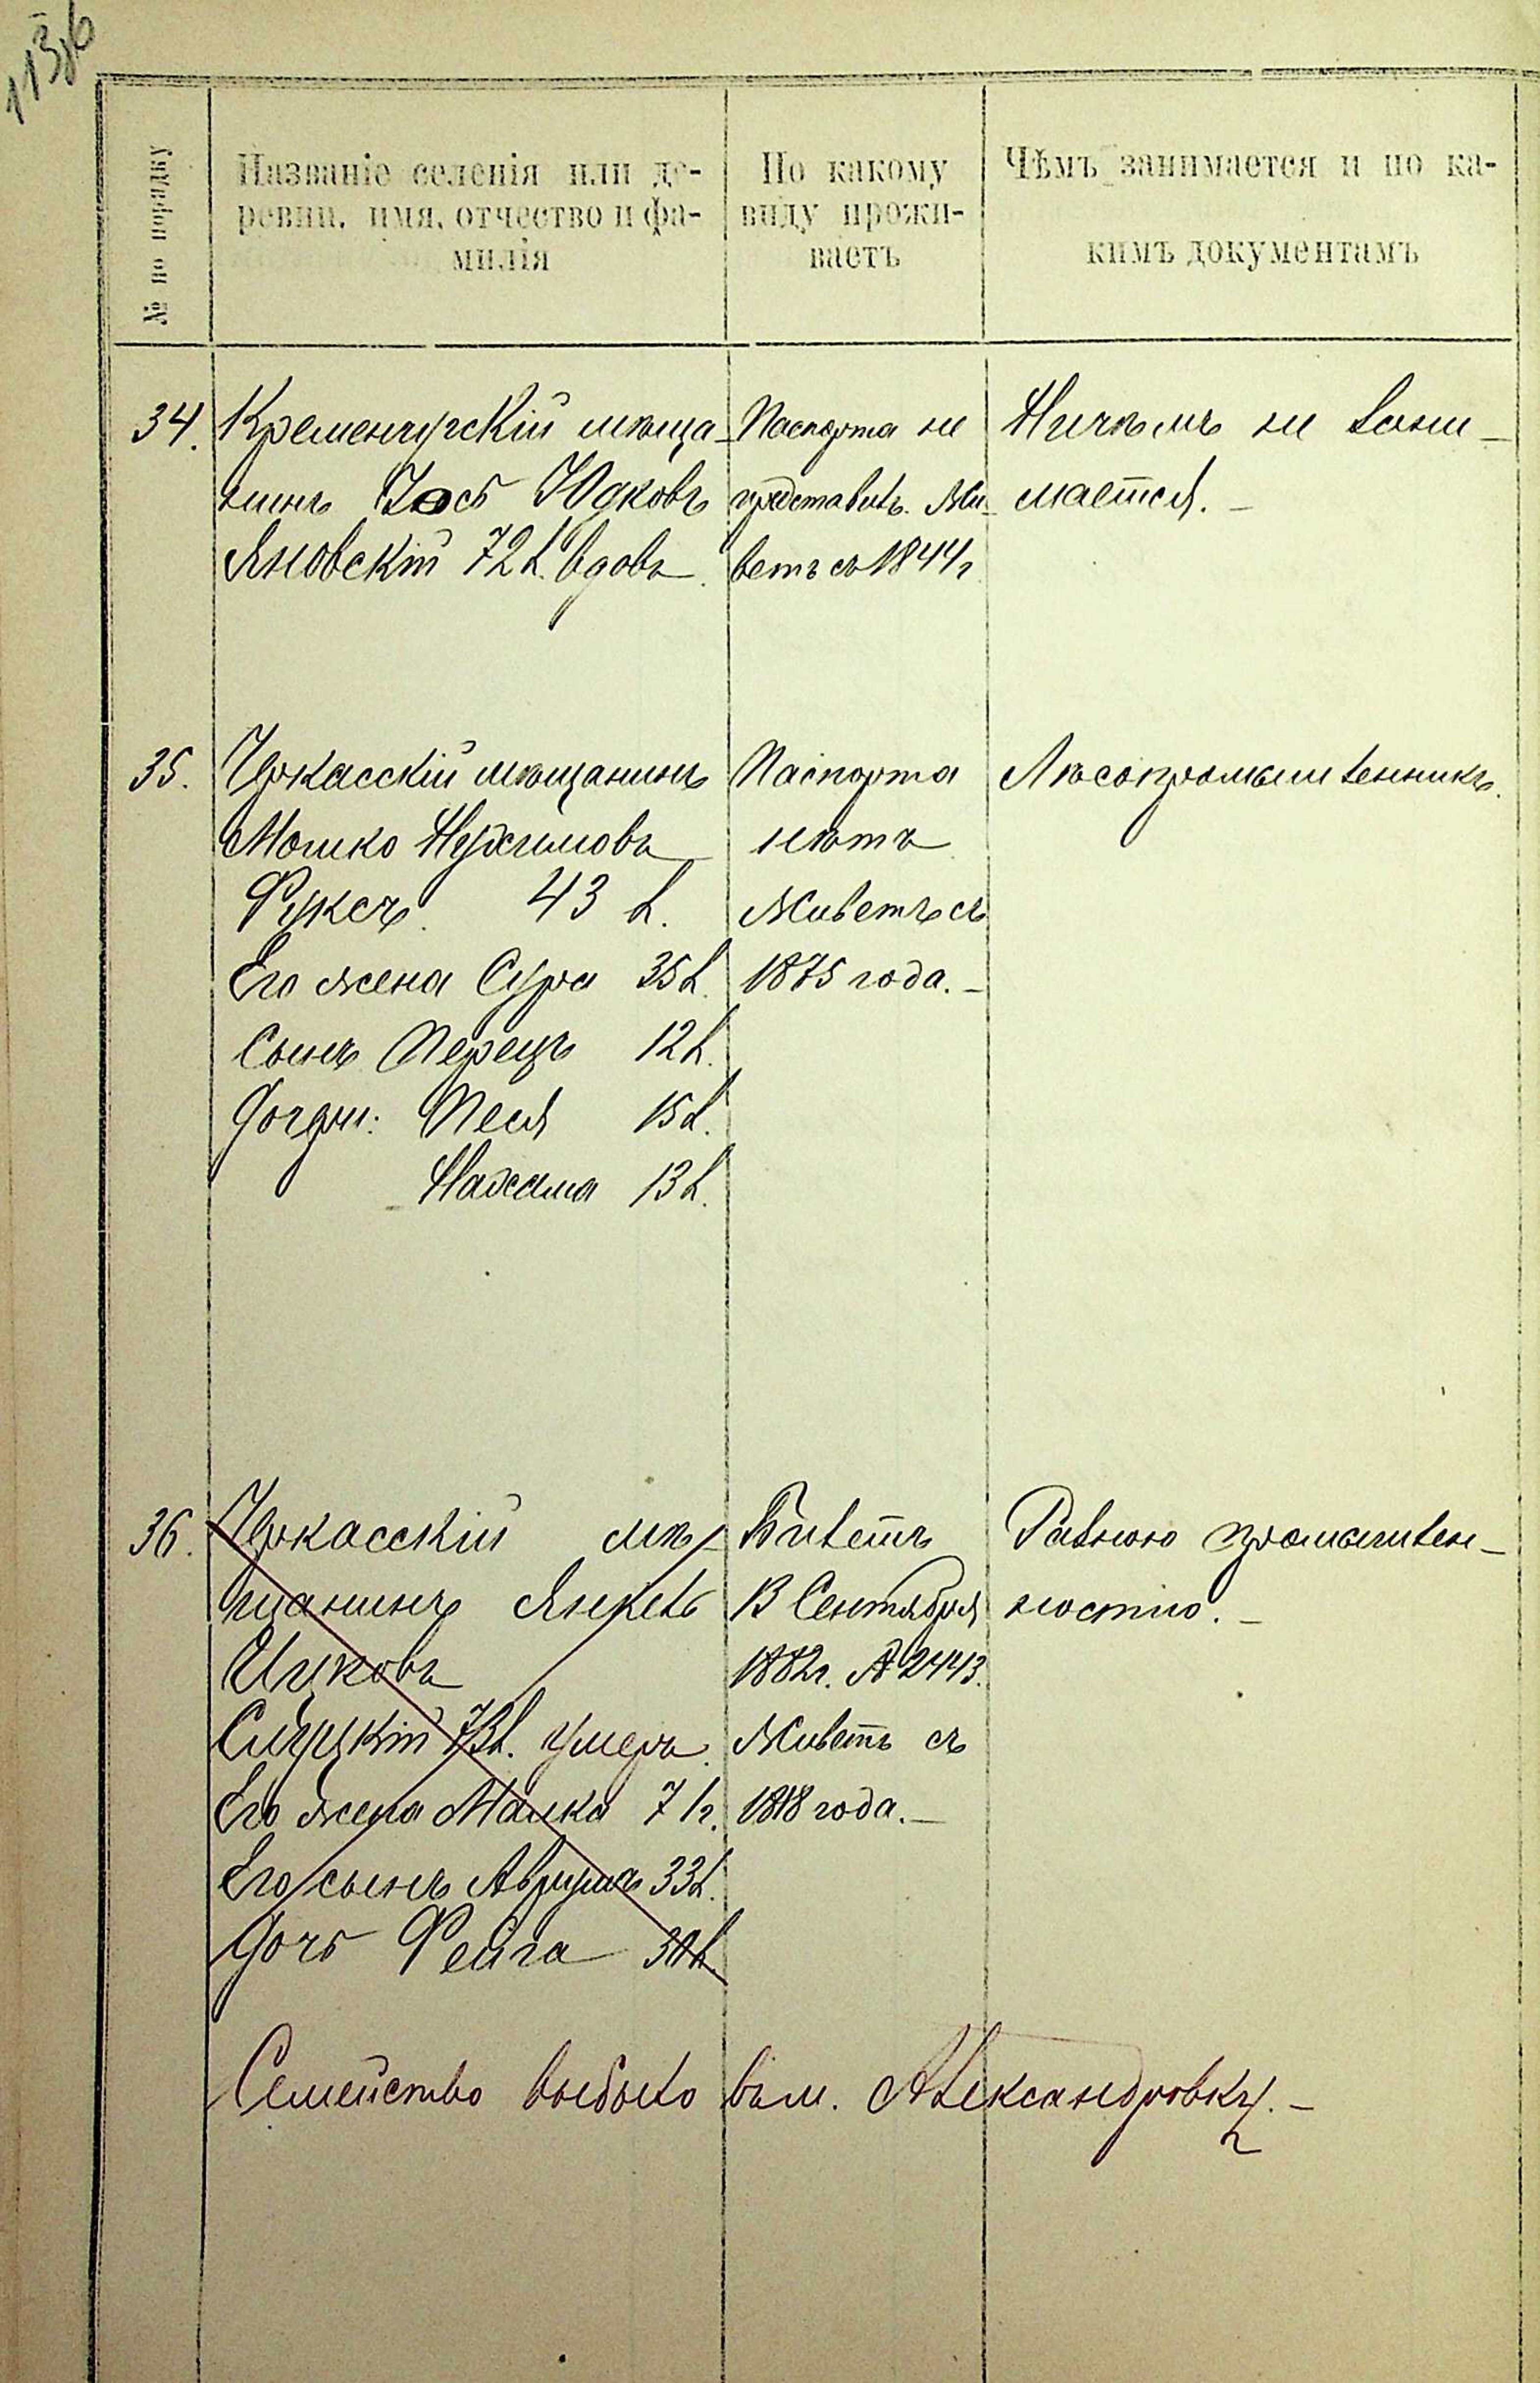 113об
№ по порядку
Названіе селенія или де-
ревни, имя, отчество и фа-
милія
По какому
виду прожи-
ваетъ
Чѣмъ занимается и по ка-
кимъ документамъ
34.
Кременчугскій мѣща-
нинъ Іось Юдковъ
Яновскій 72 л. вдовъ.
Паспорта не
представилъ. Жи-
ветъ съ 1844 г
Ничѣмъ не зани-
мается.-
35.
Черкасскій мѣщанинъ
Мошко Нухимовъ
Фуксъ. 43 л.
Его жена Сура 35 л.
Сынъ Перецъ 12 л.
Дочери: Песя 15 л.
Нахама 13 л.
Паспорта
нѣтъ
Живетъ съ
1875 года.-
Лѣсопромышленникъ.
36.
Черкасскій мѣ-
щанинъ Янкель
Ицковъ
Слуцкій 73 л. умеръ.
Его жена Малка 71 г.
Его сынъ Аврумъ 33 л.
Дочь Фейга 30 л.
Билетъ
13 Сентября
1882 г. № 2443.
Живетъ съ
1818 года.-
Разною промышлен-
ностію.-
Семейство выбыло въ м. Александровку.-